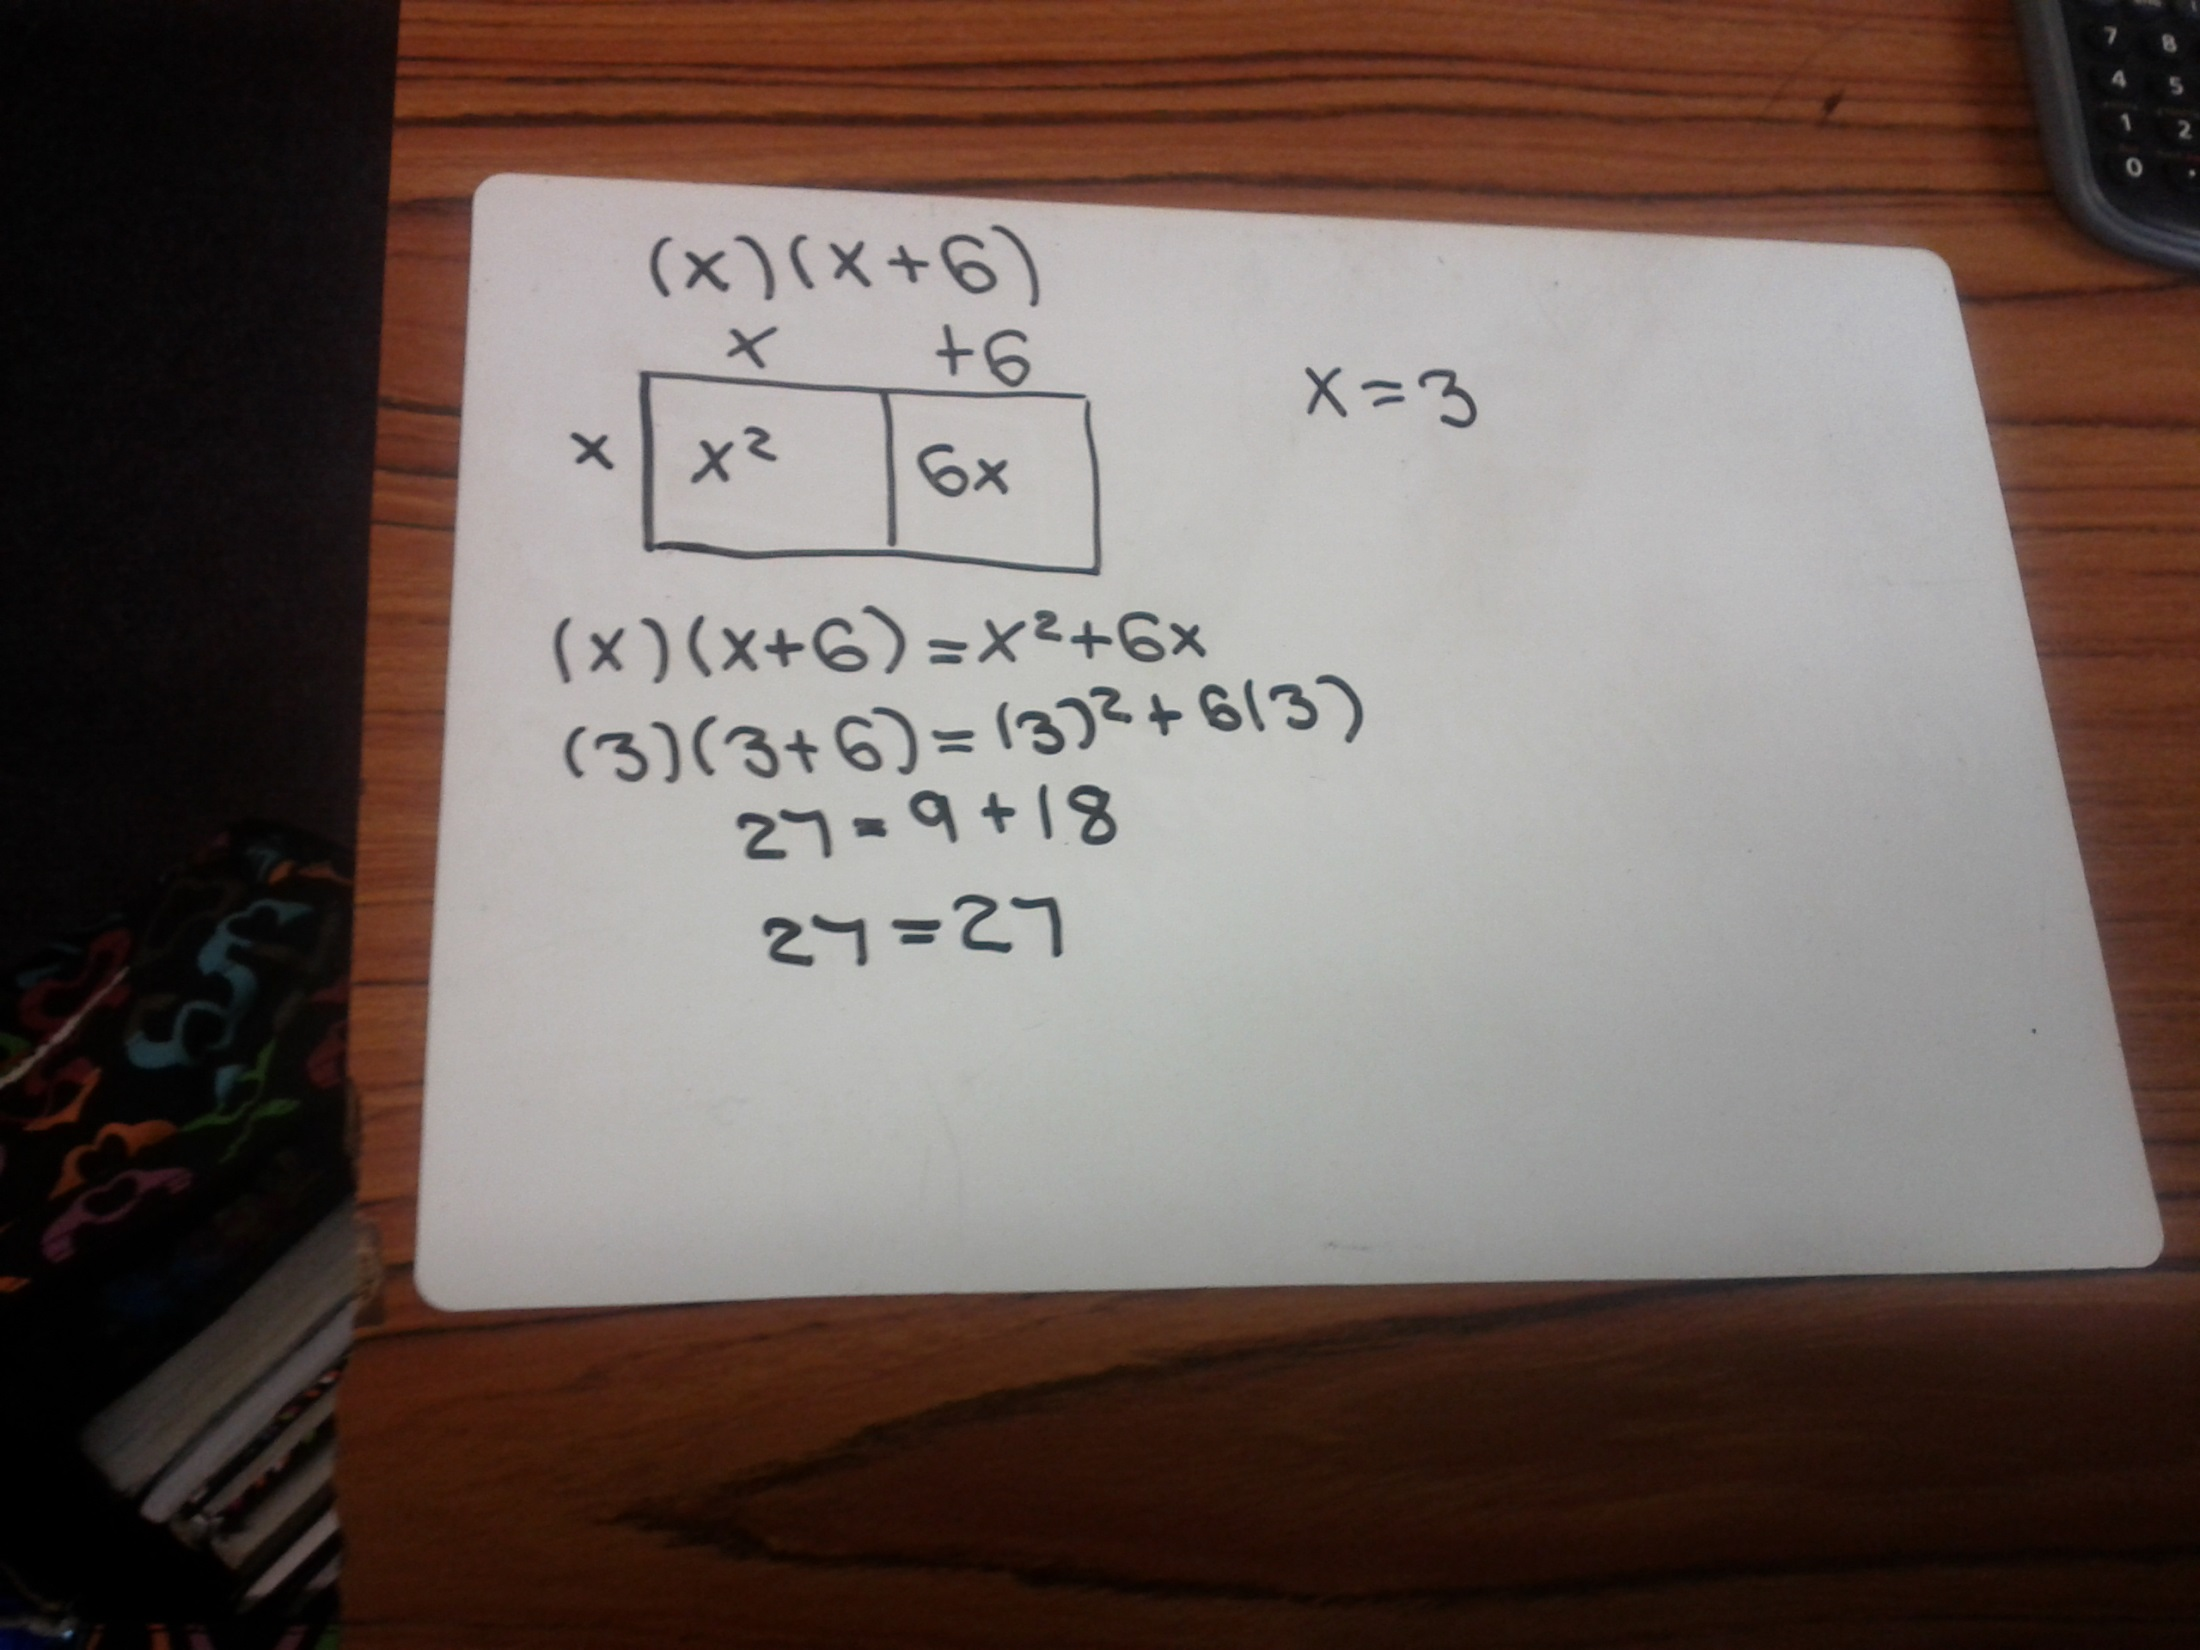 (x)(x+6)
x +6
x x² 6x
x=3
(x)(x+6)=x²+6x
(3)(3+6)=(3)²+6(3)
27=9+18
27=27
7 8
4 5
1 2
0 .